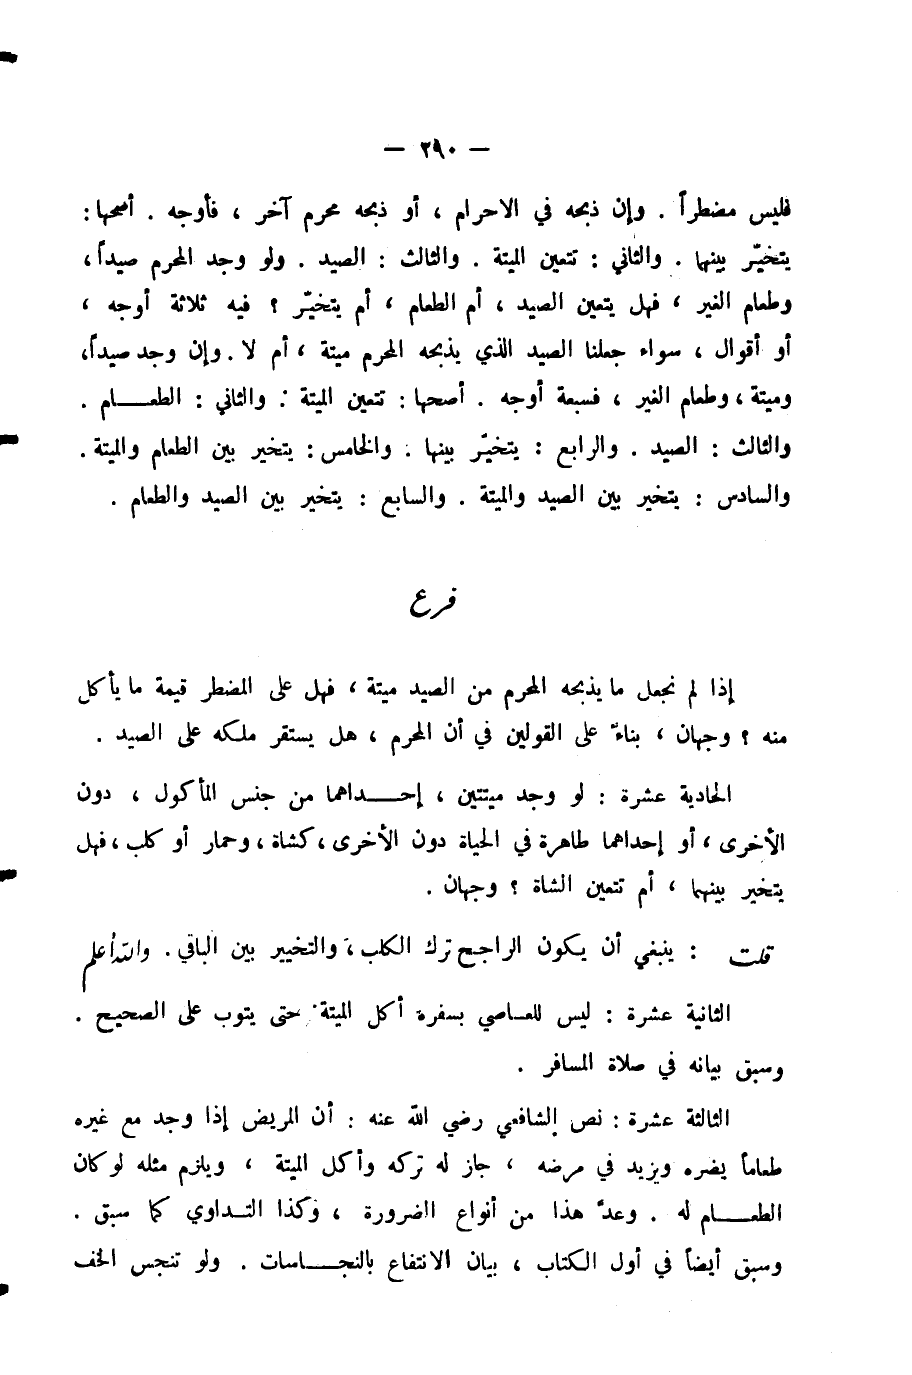 — ٢٩٠ —
فليس مضطراً . وإن ذبحه في الاحرام ، أو ذبحه محرم آخر ، فأوجه . أصحها :
يتخيّر بينها . والثاني : تتعين الميتة . والثالث : الصيد . ولو وجد المحرم صيداً ،
وطعام الغير ، فهل يتعين الصيد ، أم الطعام ، أم يتخيّر ؟ فيه ثلاثة أوجه ،
أو أقوال ، سواء جعلنا الصيد الذي يذبحه المحرم ميتة ، أم لا . وإن وجد صيداً ،
وميتة ، وطعام الغير ، فسبعة أوجه . أصحها : تتعين الميتة . والثاني : الطعـــام .
والثالث : الصيد . والرابع : يتخيّر بينها . والخامس : يتخير بين الطعام والميتة .
والسادس : يتخير بين الصيد والميتة . والسابع : يتخير بين الصيد والطعام .
فرع
إذا لم نجعل ما يذبحه المحرم من الصيد ميتة ، فهل على المضطر قيمة ما يأكل
منه ؟ وجهان ، بناءً على القولين في أن المحرم ، هل يستقر ملكه على الصيد .
الحادية عشرة : لو وجد ميتتين ، إحـــداهما من جنس المأكول ، دون
الأخرى ، أو إحداهما طاهرة في الحياة دون الأخرى ، كشاة ، وحمار أو كلب ، فهل
يتخير بينهما ، أم تتعين الشاة ؟ وجهان .
قلت : ينبغي أن يكون الراجح ترك الكلب ، والتخيير بين الباقي . والله أعلم
الثانية عشرة : ليس للعـاصي بسفره أكل الميتة حتى يتوب على الصحيح .
وسبق بيانه في صلاة المسافر .
الثالثة عشرة : نص الشافعي رضي الله عنه : أن المريض إذا وجد مع غيره
طعاماً يضره ويزيد في مرضه ، جاز له تركه وأكل الميتة ، ويلزم مثله لو كان
الطعـــام له . وعدّ هذا من أنواع الضرورة ، وكذا التـداوي كما سبق .
وسبق أيضاً في أول الكتاب ، بيان الانتفاع بالنجـــاسات . ولو تنجس الخف